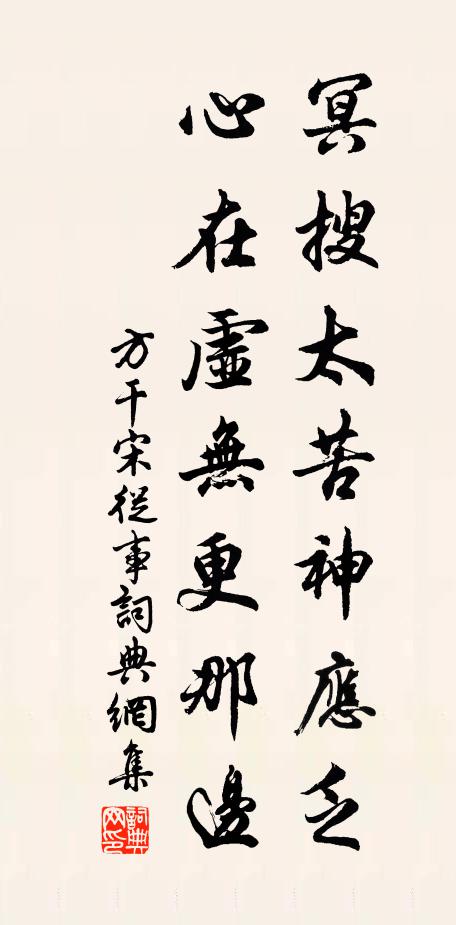 冥搜太苦神應乏
心在虛無更那邊
方干宋從事詞典網集
詞典網印